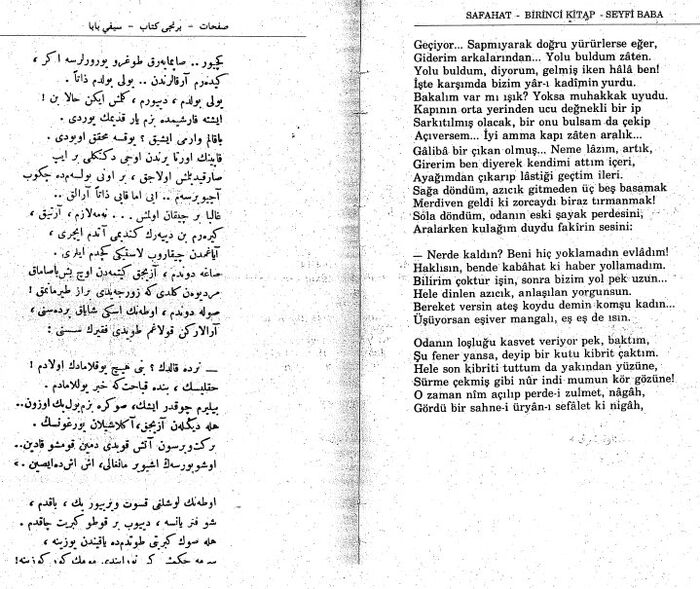 صفحات - برنجی کتاب - سیفی بابا
کچیور .. صاپمایه‌رق طوغرو یورورلرسه اکر ،
کیده‌رم آرقالرندن .. یولی بولدم ذاتاً .
یولی بولدم ، دییورم ، کلمش ایکن حالا بن !
ایشته قارشیمده بزم یار قدیمك یوردی .
باقالم وارمی ایشیق ؟ یوقسه محقق اویودی .
قاپینك اورتا یرندن اوجی دکنکلی بر ایپ
صارقیدیلمش اولاجق ، بر اونی بولسه‌مده چکوب
آچیویرسه‌م .. ایی اما قاپی ذاتاً آرالق ..
غالبا بر چیقان اولمش ... نه‌مه‌لازم ، آرتیق ،
کیره‌رم بن دییه‌رك کندیمی آتدم ایچری ،
آیاغمدن چیقاروب لاستیکی کچدم ایلری .
صاغه دوندم ، آزیجق کیتمه‌دن اوچ بش‌باصاماق
مردیوه‌ن کلدی که زورجه‌یدی براز طیرمانمق !
صوله دوندم ، اوطه‌نك اسکی شایاق پرده‌سنی ،
آرالارکن قولاغم طویدی فقیرك سسنی :
— نرده قالدك ؟ بنی هیچ یوقلامادك اولادم !
حقلیسك ، بنده قباحت‌که خبر یوللامادم .
بیلیرم چوقدر ایشك، صوکره بزم‌یول‌پك اوزون..
هله دیکله‌ن آزیجق،آکلاشیلان یورغونسك .
برکت‌ویرسون آتش قویدی دمین قومشو قادین..
اوشویورسه‌ك اشیویر مانغالی، اش اش‌ده‌ایصین .
اوطه‌نك لوشلغی قسوت ویرییور پك ، باقدم ،
شو فنر یانسه ، دییوب بر قوطو کبریت چاقدم .
هله صوك کبریتی طوتدم‌ده یاقیندن یوزینه ،
SAFAHAT - BİRİNCİ KİTAP - SEYFİ BABA
Geçiyor... Sapmıyarak doğru yürürlerse eğer,
Giderim arkalarından... Yolu buldum zâten.
Yolu buldum, diyorum, gelmiş iken hâlâ ben!
İşte karşımda bizim yâr-ı kadîmin yurdu.
Bakalım var mı ışık? Yoksa muhakkak uyudu.
Kapının orta yerinden ucu değnekli bir ip
Sarkıtılmış olacak, bir onu bulsam da çekip
Açıversem... İyi amma kapı zâten aralık...
Gâlibâ bir çıkan olmuş... Neme lâzım, artık,
Girerim ben diyerek kendimi attım içeri,
Ayağımdan çıkarıp lâstiği geçtim ileri.
Sağa döndüm, azıcık gitmeden üç beş basamak
Merdiven geldi ki zorcaydı biraz tırmanmak!
Sola döndüm, odanın eski şayak perdesini,
Aralarken kulağım duydu fakîrin sesini:
— Nerde kaldın? Beni hiç yoklamadın evlâdım!
Haklısın, bende kabâhat ki haber yollamadım.
Bilirim çoktur işin, sonra bizim yol pek uzun...
Hele dinlen azıcık, anlaşılan yorgunsun.
Bereket versin ateş koydu demin komşu kadın...
Üşüyorsan eşiver mangalı, eş eş de ısın.
Odanın loşluğu kasvet veriyor pek, baktım,
Şu fener yansa, deyip bir kutu kibrit çaktım.
Hele son kibriti tuttum da yakından yüzüne,
Sürme çekmiş gibi nûr indi mumun kör gözüne!
O zaman nîm açılıp perde-i zulmet, nâgâh,
Gördü bir sahne-i üryân-ı sefâlet ki nigâh,